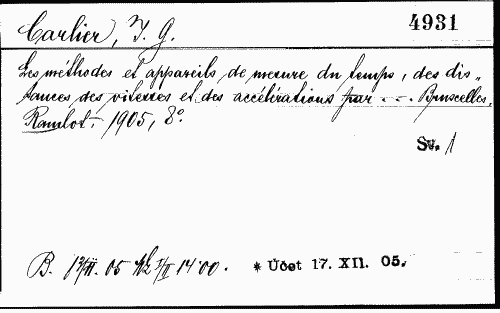 Carlier, J. G. 4931
Les méthodes et appareils de mesure du temps, des dis„
tances des vitesses et des accélérations par - - -. Bruxelles,
Ramlot. 1905, 8°.
Sv. 1
B. 05 14·00. * Účet 17. XII. 05.